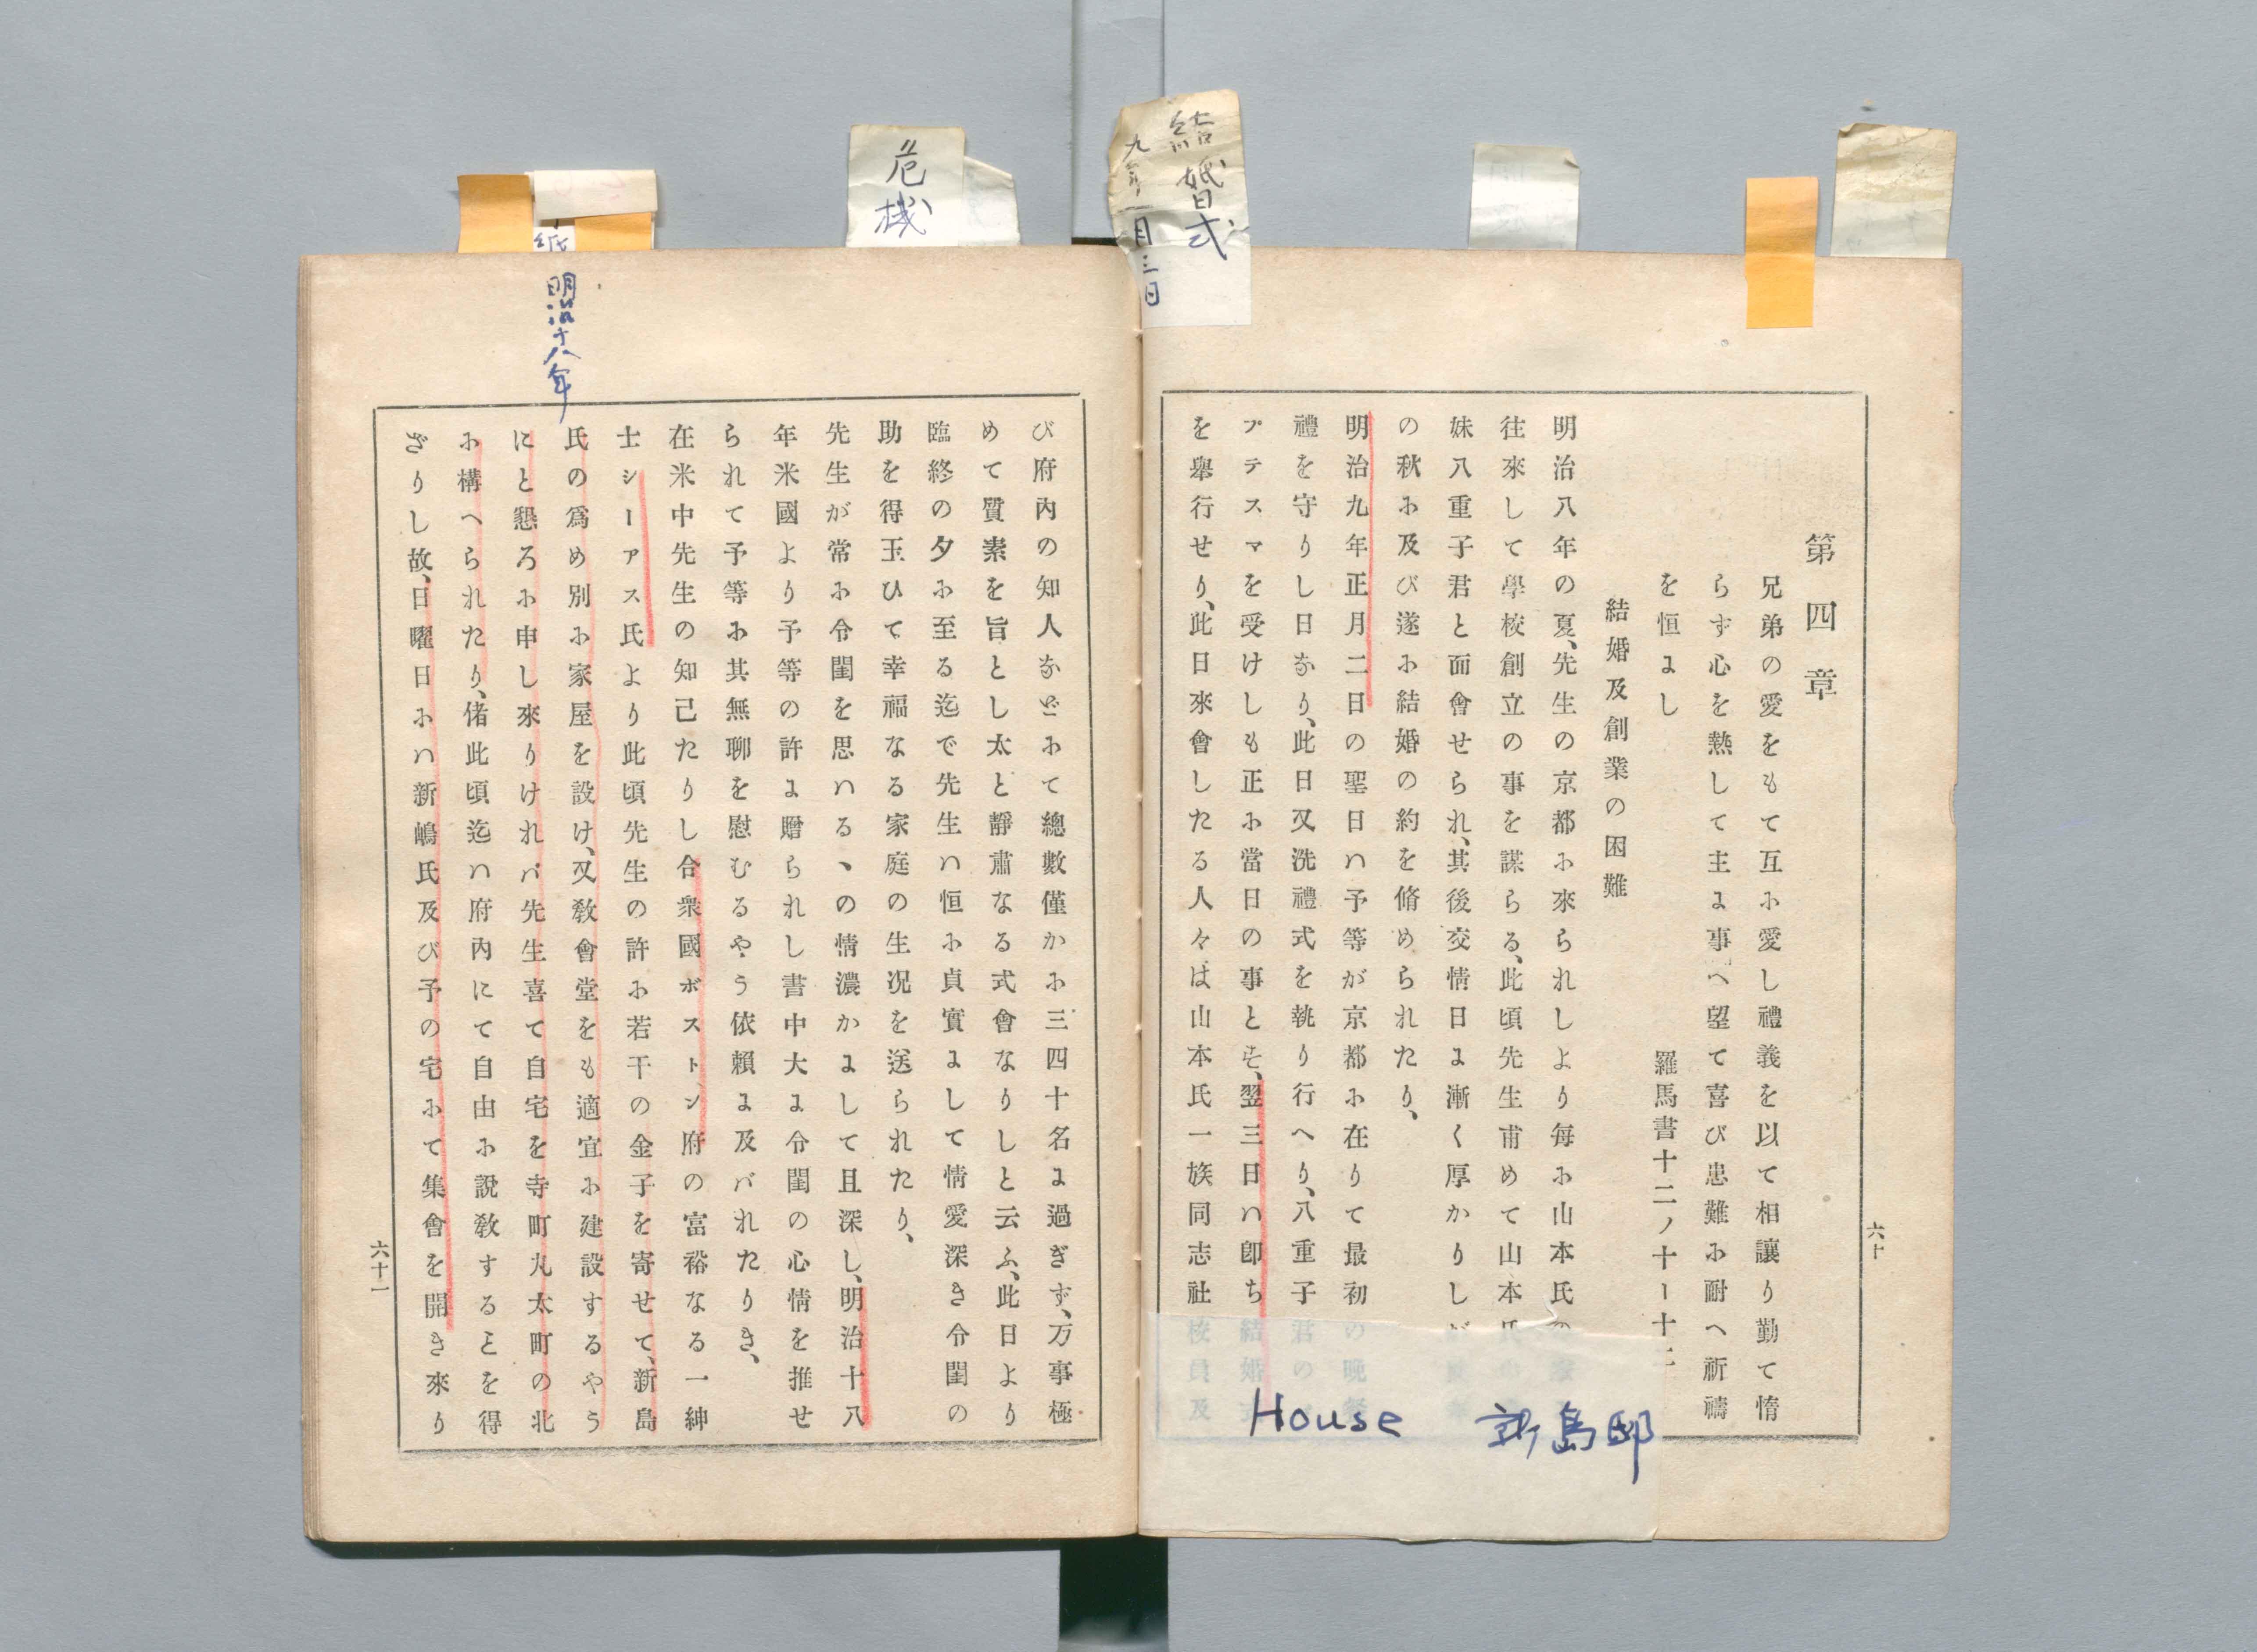 結婚式
九年一月三日
危機
明治十八年
第四章
兄弟の愛をもて互に愛し禮義を以て相讓り勤て惰
らず心を熱して主に事へ望て喜び患難に耐へ祈禱
を恒にし
羅馬書十二ノ十ー十二
結婚及創業の困難
明治八年の夏、先生の京都に來られしより每に山本氏の
往來して學校創立の事を謀らる、此頃先生甫めて山本氏の
妹八重子君と面會せられ、其後交情日に漸く厚かりしが
の秋に及び遂に結婚の約を脩められたり、
明治九年正月二日の聖日ハ予等が京都に在りて最初の晩餐
禮を守りし日なり、此日又洗禮式を執り行へり、八重子君の
プテスマを受けしも正に當日の事とぞ、翌三日ハ卽ち結婚式
を擧行せり、此日來會したる人々は山本氏一族同志社校員及
六十
House 新島邸
び府內の知人などにて總數僅かに三四十名に過ぎず、万事極
めて質素を旨とし太と靜肅なる式會なりしと云ふ、此日より
臨終の夕に至る迄で先生ハ恒に貞實にして情愛深き令閨の
助を得玉ひて幸福なる家庭の生况を送られたり、
先生が常に令閨を思ハるヽの情濃かにして且深し、明治十八
年米國より予等の許に贈られし書中大に令閨の心情を推せ
られて予等に其無聊を慰むるやう依賴に及バれたりき、
在米中先生の知己たりし合衆國ボストン府の富裕なる一紳
士シーアス氏より此頃先生の許に若干の金子を寄せて、新島
氏の爲め別に家屋を設け、又敎會堂をも適宜に建設するやう
にと懇ろに申し來りけれバ先生喜て自宅を寺町丸太町の北
に構へられたり、偖此頃迄ハ府內にて自由に說敎するヿを得
ざりし故、日曜日にハ新嶋氏及び予の宅にて集會を開き來り
六十一